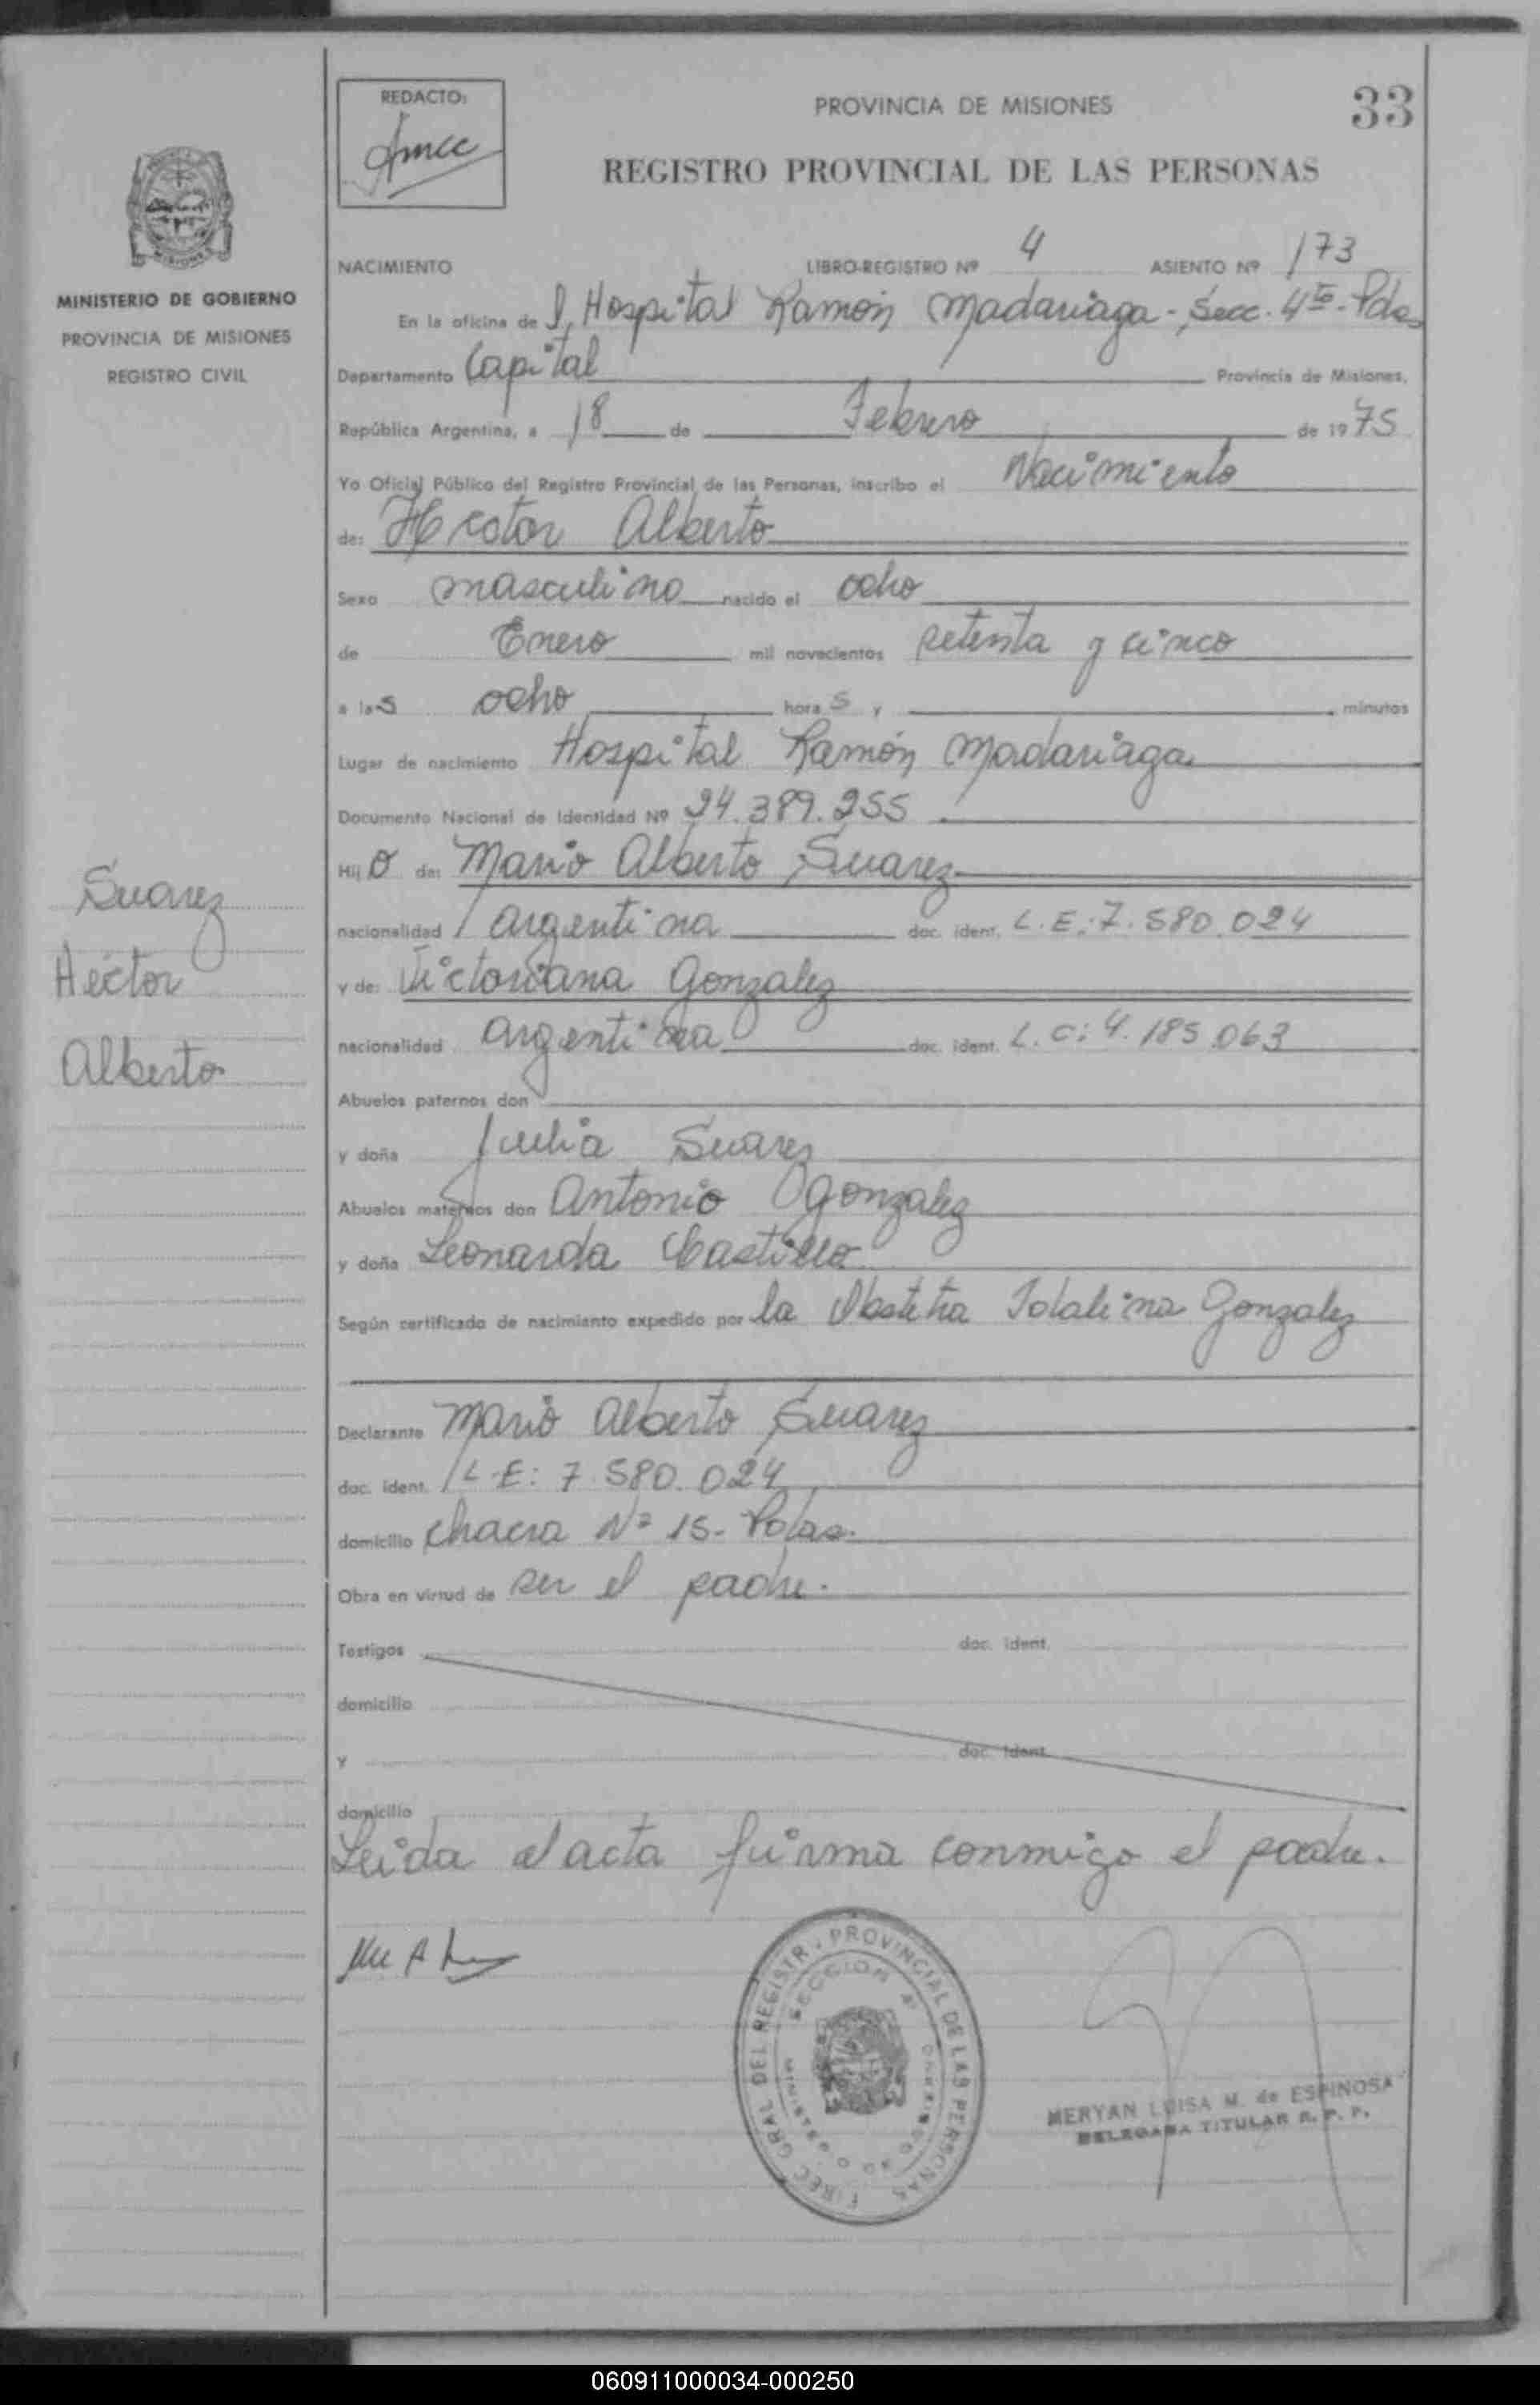 REDACTO:
PROVINCIA DE MISIONES
33
REGISTRO PROVINCIAL DE LAS PERSONAS
MISIONES
MINISTERIO DE GOBIERNO
PROVINCIA DE MISIONES
REGISTRO CIVIL
NACIMIENTO LIBRO-REGISTRO Nº 4 ASIENTO Nº 173
En la oficina de l, Hospital Ramón Madariaga - Secc. 4ta - Pdas
Departamento Capital Provincia de Misiones,
República Argentina, a 18 de Febrero de 1975
Yo Oficial Público del Registro Provincial de las Personas, inscribo el Nacimiento
de: Hector Alberto
Sexo masculino nacido el ocho
de Enero mil novecientos setenta y cinco
a las ocho horas y minutos
Lugar de nacimiento Hospital Ramón Madariaga
Documento Nacional de Identidad Nº 24.389.255
Hijo de: Mario Alberto Suarez
nacionalidad argentina doc. ident. L.E: 7.580.024
y de: Victoriana Gonzalez
nacionalidad argentina doc. ident. L.C: 4.185.063
Suarez
Héctor
Alberto
Abuelos paternos don
y doña Julia Suarez
Abuelos maternos don Antonio Gonzalez
y doña Leonarda Castillo
Según certificado de nacimiento expedido por la Obstetra Gonzalez
Declarante Mario Alberto Suarez
doc. ident. L.E: 7.580.024
domicilio Chacra Nº 15- Pdas.
Obra en virtud de ser el padre.
Testigos doc. ident.
domicilio
y doc. ident.
domicilio
Leida el acta firma conmigo el padre.
DIREC. GRAL DEL REGISTR. PROVINCIAL DE LAS PERSONAS
SECCION 4ª
MERYAN LUISA M. de ESPINOSA
DELEGADA TITULAR R. P. P.
060911000034-000250